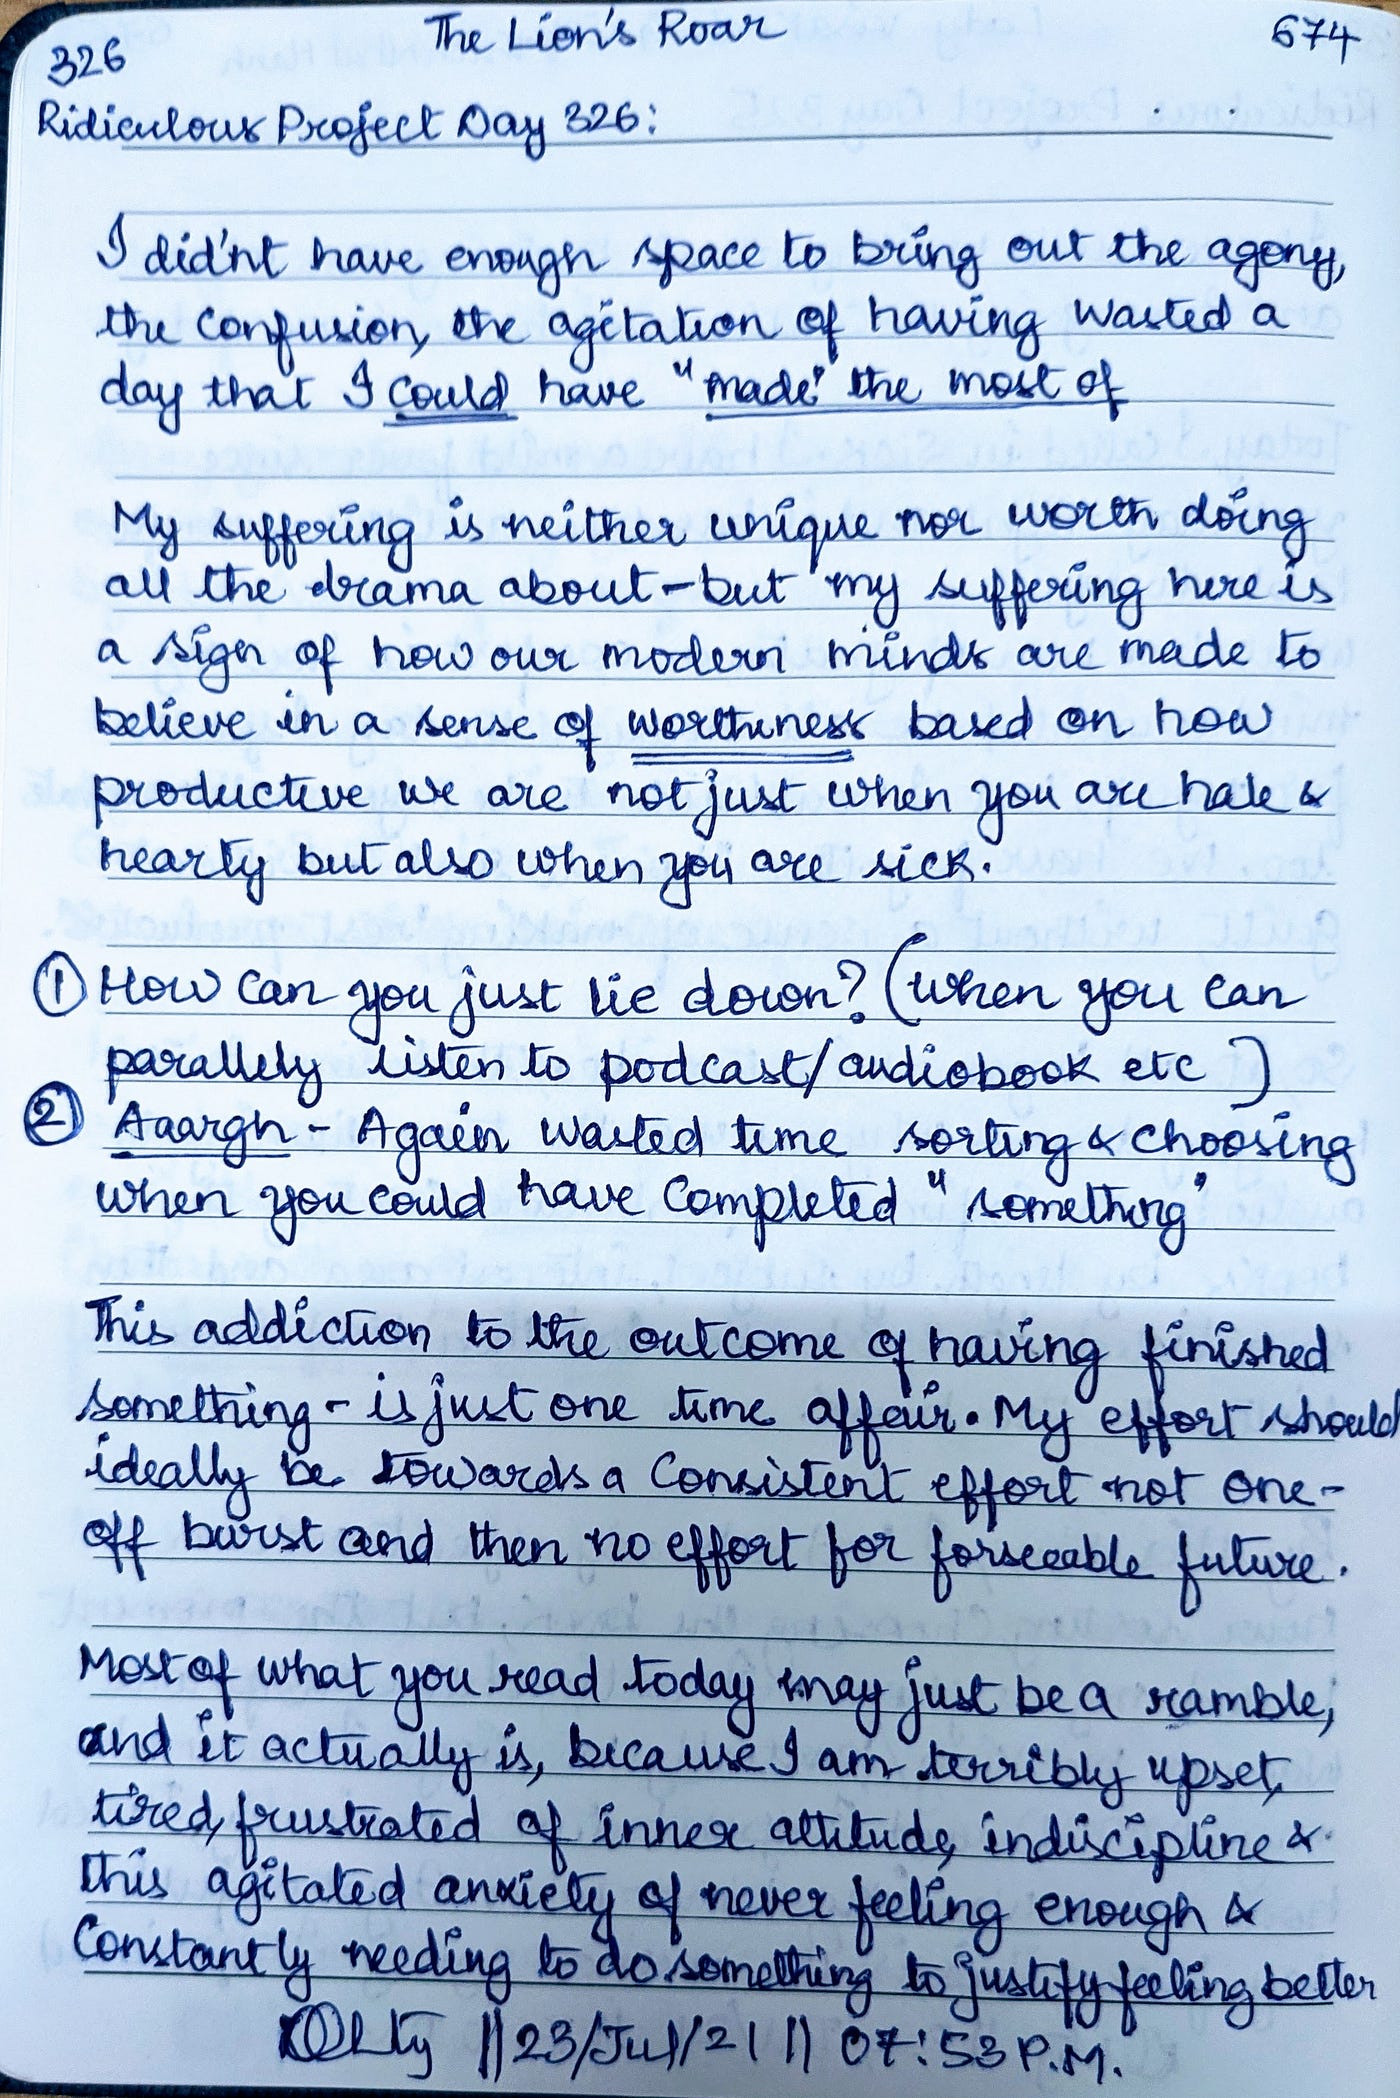 The Lion's Roar
326
674
Ridiculous Project Day 326:
I did'nt have enough space to bring out the agony,
the confusion, the agitation of having wasted a
day that I could have "made" the most of
My suffering is neither unique nor worth doing
all the drama about - but my suffering here is
a sign of how our modern minds are made to
believe in a sense of worthiness based on how
productive we are not just when you are hale &
hearty but also when you are sick.
① How can you just lie down? (when you can
parallely listen to podcast/audiobook etc)
② Aaargh - Again wasted time sorting & choosing
when you could have completed "something"
This addiction to the outcome of having finished
something - is just one time affair. My effort should
ideally be towards a consistent effort not one-
off burst and then no effort for forseeable future.
Most of what you read today may just be a ramble,
and it actually is, because I am terribly upset,
tired, frustrated of inner attitude, indiscipline &
this agitated anxiety of never feeling enough &
Constantly needing to do something to justify feeling better
|| 23/Jul/21 || 07:53 P.M.